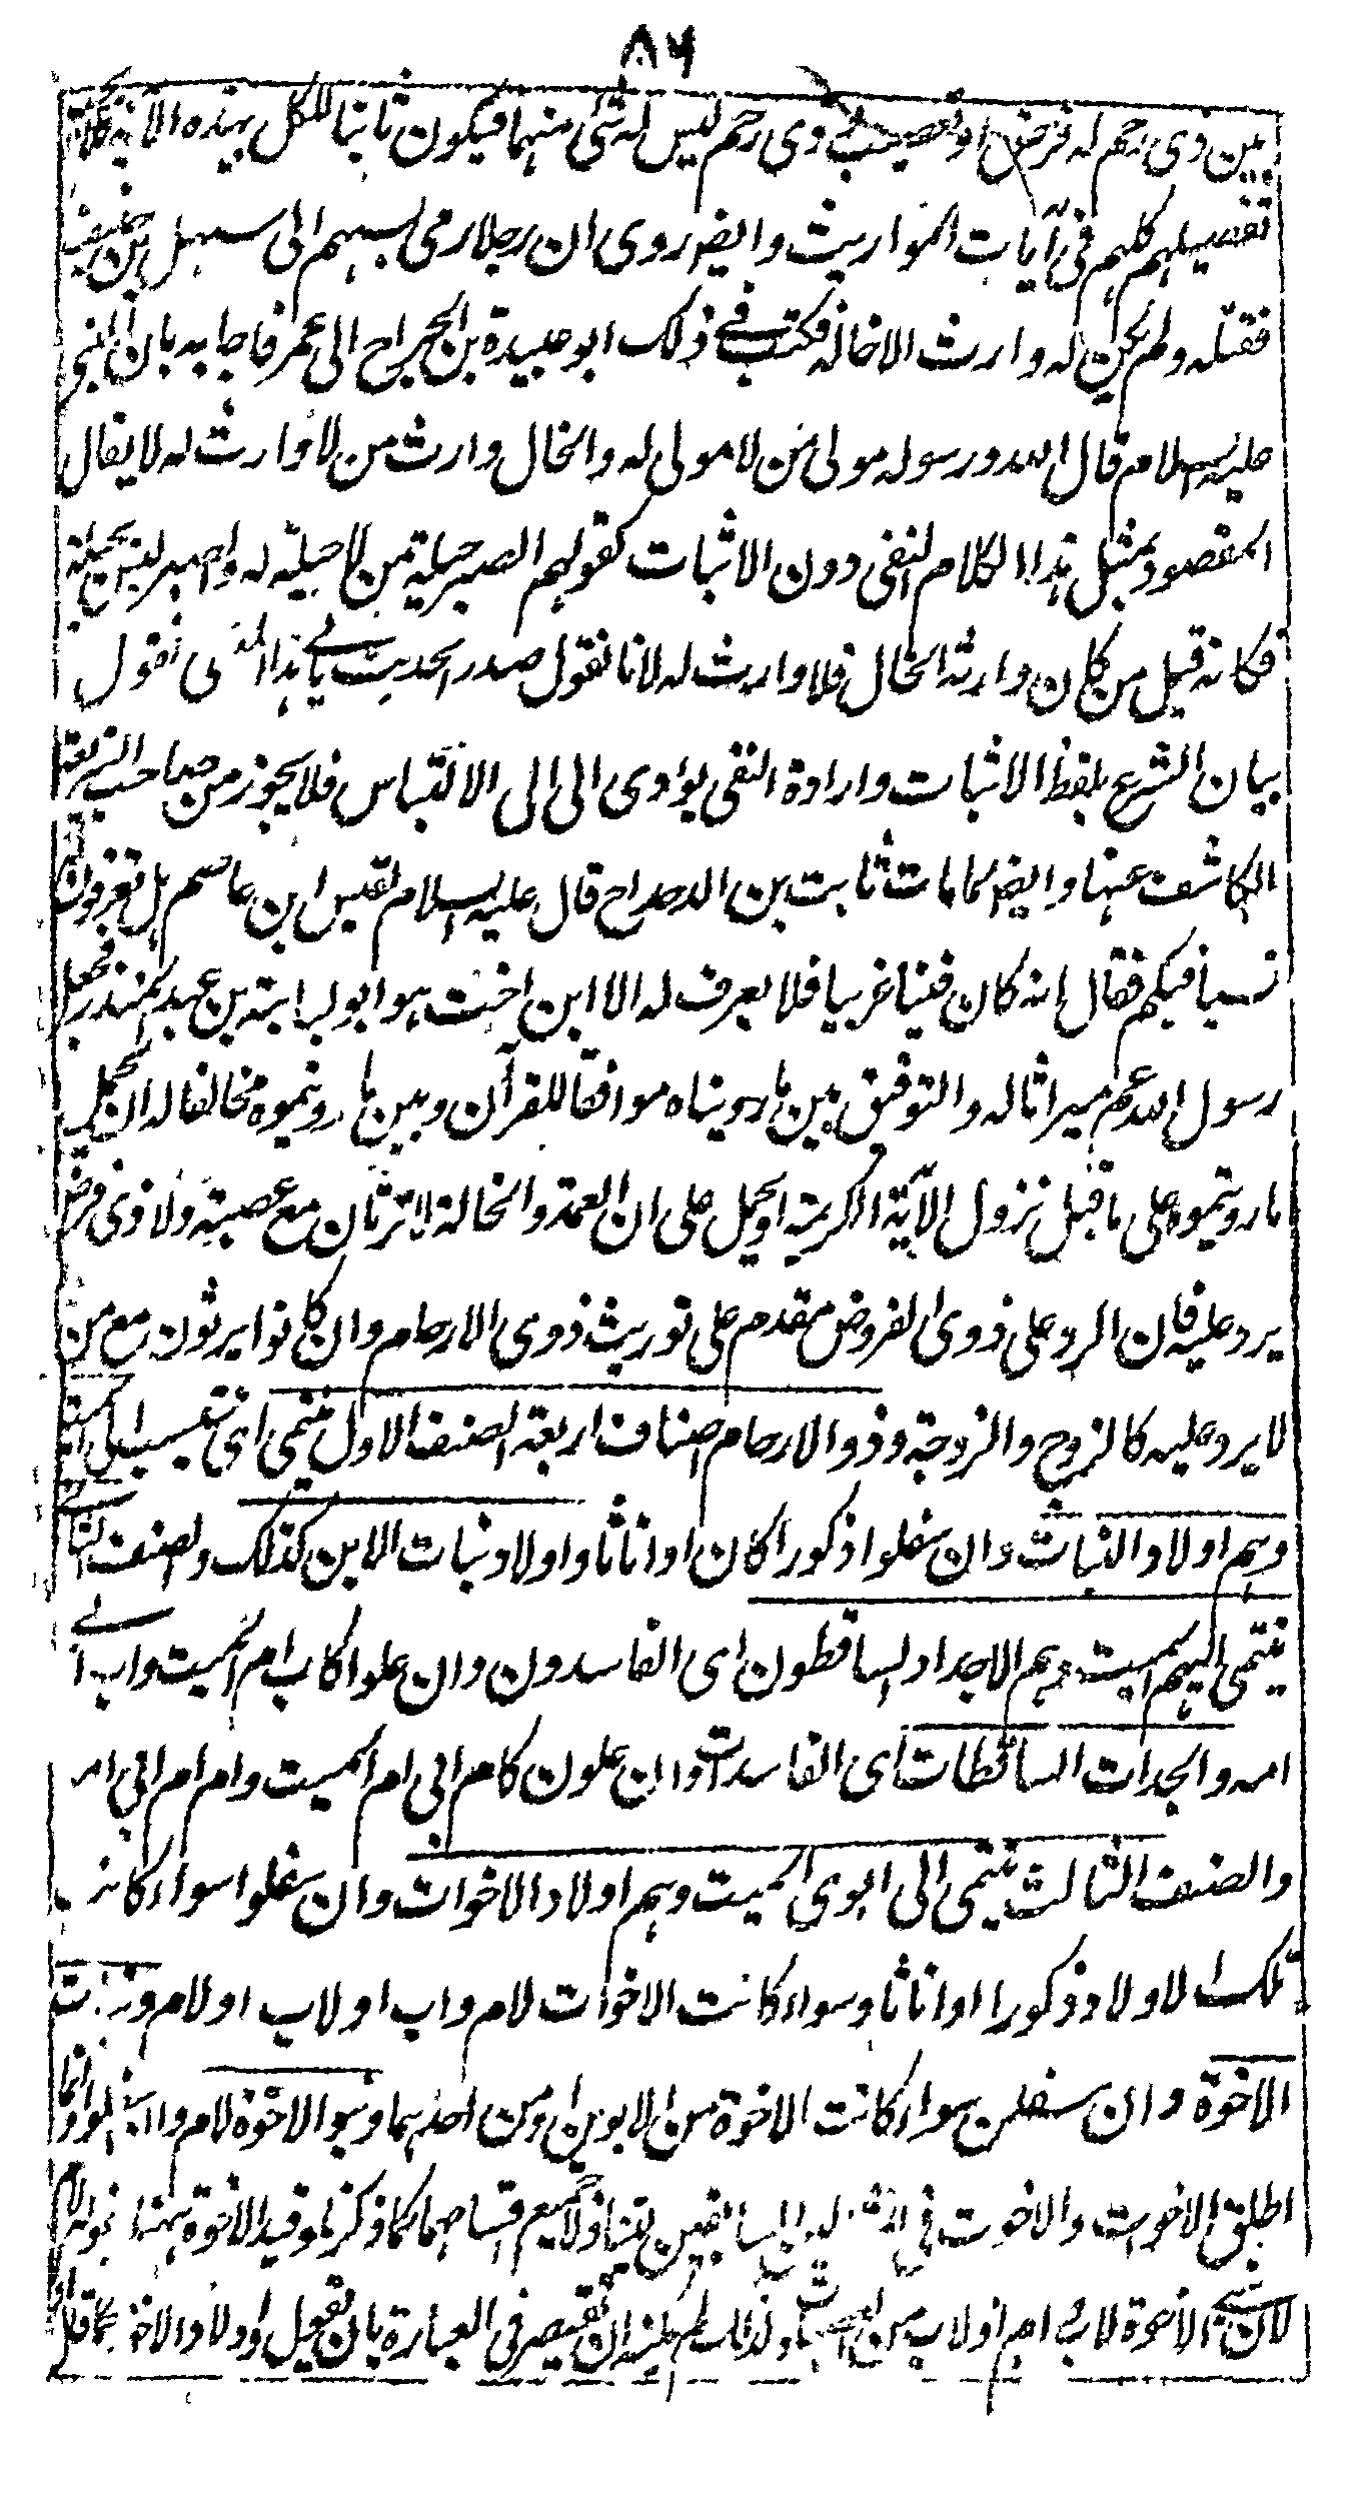 ٨٦
بين ذى رحم له فرض او تعصيب وذى رحم ليس له شئ منهما فيكون ثابتا للكل بهذه الآية
تفصيلهم كلهم فى آيات المواريث وايضا روى ان رجلا رمى بسهم الى سهل بن حنيف
فقتله ولم يكن له وارث الا خاله فكتب فى ذلك ابو عبيدة بن الجراح الى عمر فاجابه بان النبى
عليه السلام قال الله ورسوله مولى من لا مولى له والخال وارث من لا وارث له لا يقال
المقصود بمثل هذا الكلام النفى دون الاثبات كقولهم الصبر حيلة من لا حيلة له والصبر ليس بحيلة
فكانه قيل من كان وارثه الخال فلا وارث له لانا نقول صدر الحديث يابى هذا المعنى نقول
بيان الشرع بلفظ الاثبات وارادة النفى يؤادى الى الى الالتباس فلا يجوز من صاحب الشريعة
الكاشف عنها وايضا لما مات ثابت بن الدحداح قال عليه السلام لقيس ابن عاصم هل تعرفون له
نسبا فيكم فقال انه كان فينا غريبا فلا يعرف له الا ابن اخت هو ابو لبابة بن عبد المنذر فجعل
رسول الله عم ميراثا له والتوفيق بين ما رويناه موافقا للقرآن وبين ما رويتموه مخالفا له ان يحمل
ما رويتموه على ما قبل نزول الآية الكريمة او يحمل على ان العمة والخالة لا ترثان مع عصبة ولا ذى فرض
يرد عليه فان الرد على ذوى الفروض مقدم على توريث ذوى الارحام وان كانوا يرثون مع من
لا يرد عليه كالزوج والزوجة وذو الارحام اصناف اربعة الصنف الاول ينتمى اى ينتسب الى الميت
وهم اولاد البنات وان سفلوا ذكورا كان او اناثا واولاد بنات الابن كذلك والصنف الثانى
ينتمى اليهم الميت وهم الاجداد الساقطون اى الفاسدون وان علوا كاب ام الميت واب ابى
امه والجدات الساقطات اى الفاسدات وان علون كام ابى ام الميت وام ام ابى امه
والصنف الثالث ينتمى الى ابوى الميت وهم اولاد الاخوات وان سفلوا سواء كانت
تلك الاولاد ذكورا او اناثا وسواء كانت الاخوات لام واب او لاب او لام وبنات
الاخوة وان سفلن سواء كانت الاخوة من الابوين او من احدهما وبنو الاخوة لام وان سفلوا وانما
اطلق الاخوات والاخوت فى السابقين ليتناول جميع اقسامهما كما ذكرنا وقيد الاخوة ههنا بقوله لام
لان الاخوة لاب وام او لاب من العصبات ولذلك لم يمكنه ان يقتصر فى العبارة بان يقول اولاد الاخوة كما قال